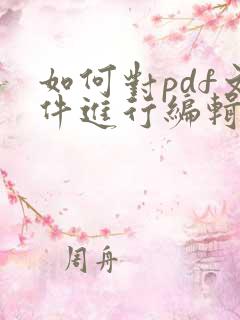 如何對pdf文
件進行編輯
周舟